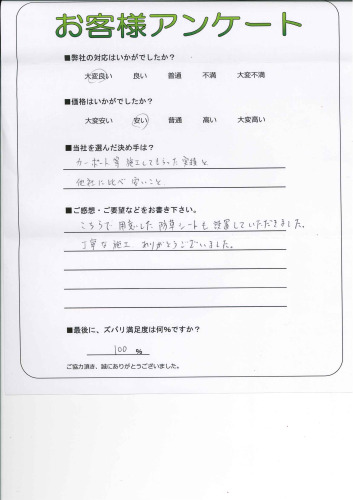 お客様アンケート
■弊社の対応はいかがでしたか？
大変良い 良い 普通 不満 大変不満
■価格はいかがでしたか？
大変安い 安い 普通 高い 大変高い
■当社を選んだ決め手は？
カーポート等 施工してもらった実績と
他社に比べ 安いこと
■ご感想・ご要望などをお書き下さい。
こちらで用意した 防草シートも 設置していただきました。
丁寧な施工 ありがとうございました。
■最後に、ズバリ満足度は何%ですか？
100 %
ご協力頂き、誠にありがとうございました。